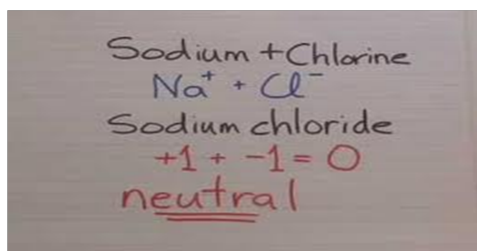 Sodium + Chlorine
Na⁺ + Cl⁻
Sodium chloride
+1 + -1 = 0
neutral